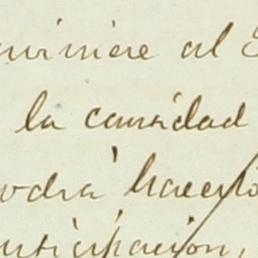 viniere al
la cantidad
podrá hacerlo
anticipación,